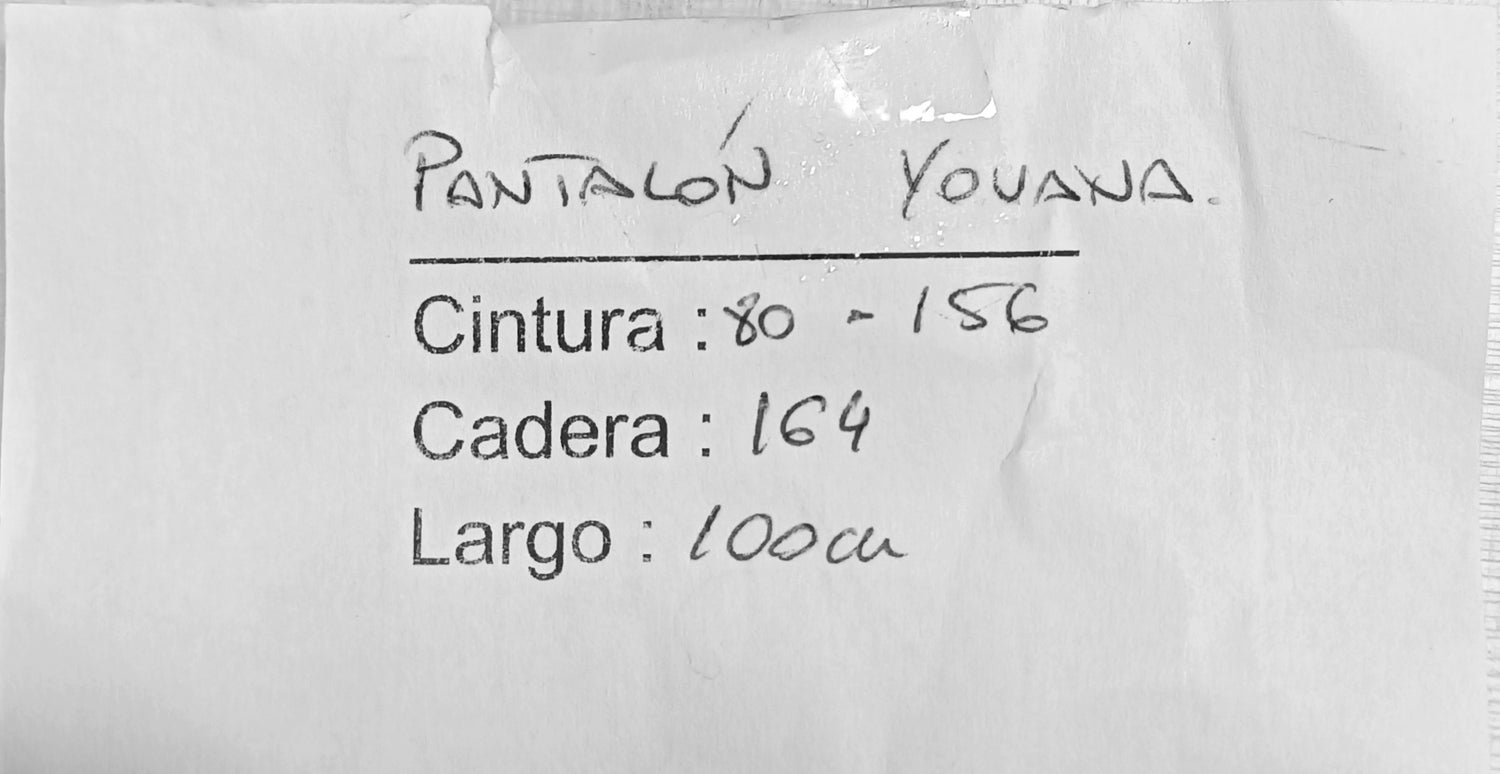 PANTALÓN YOUANA.
Cintura : 80 - 156
Cadera : 164
Largo : 100cm